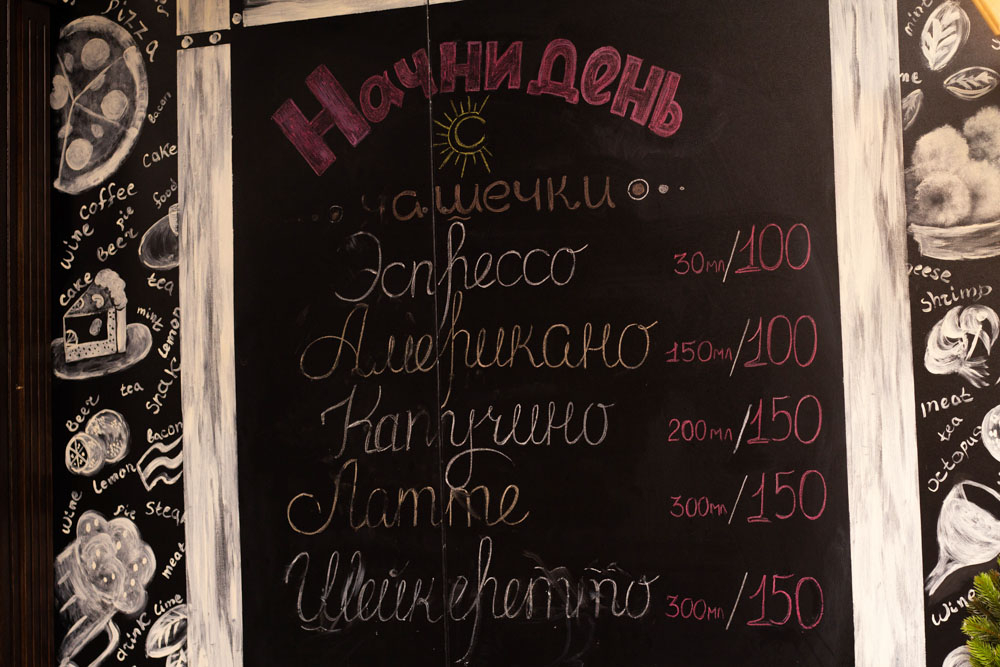 Начни день
С
чашечки
Эспрессо 30мл/100
Американо 150мл/100
Капучино 200мл/150
Латте 300мл/150
Шейкеретто 300мл/150
pizza
bacon
cake
coffee
wine
Beer
pie
food
tea
cake
mint
Lemon
Shake
tea
Beer
bacon
Lemon
wine
pie
Steak
meat
drink
lime
mint
Shrimp
meat
tea
octopus
wine